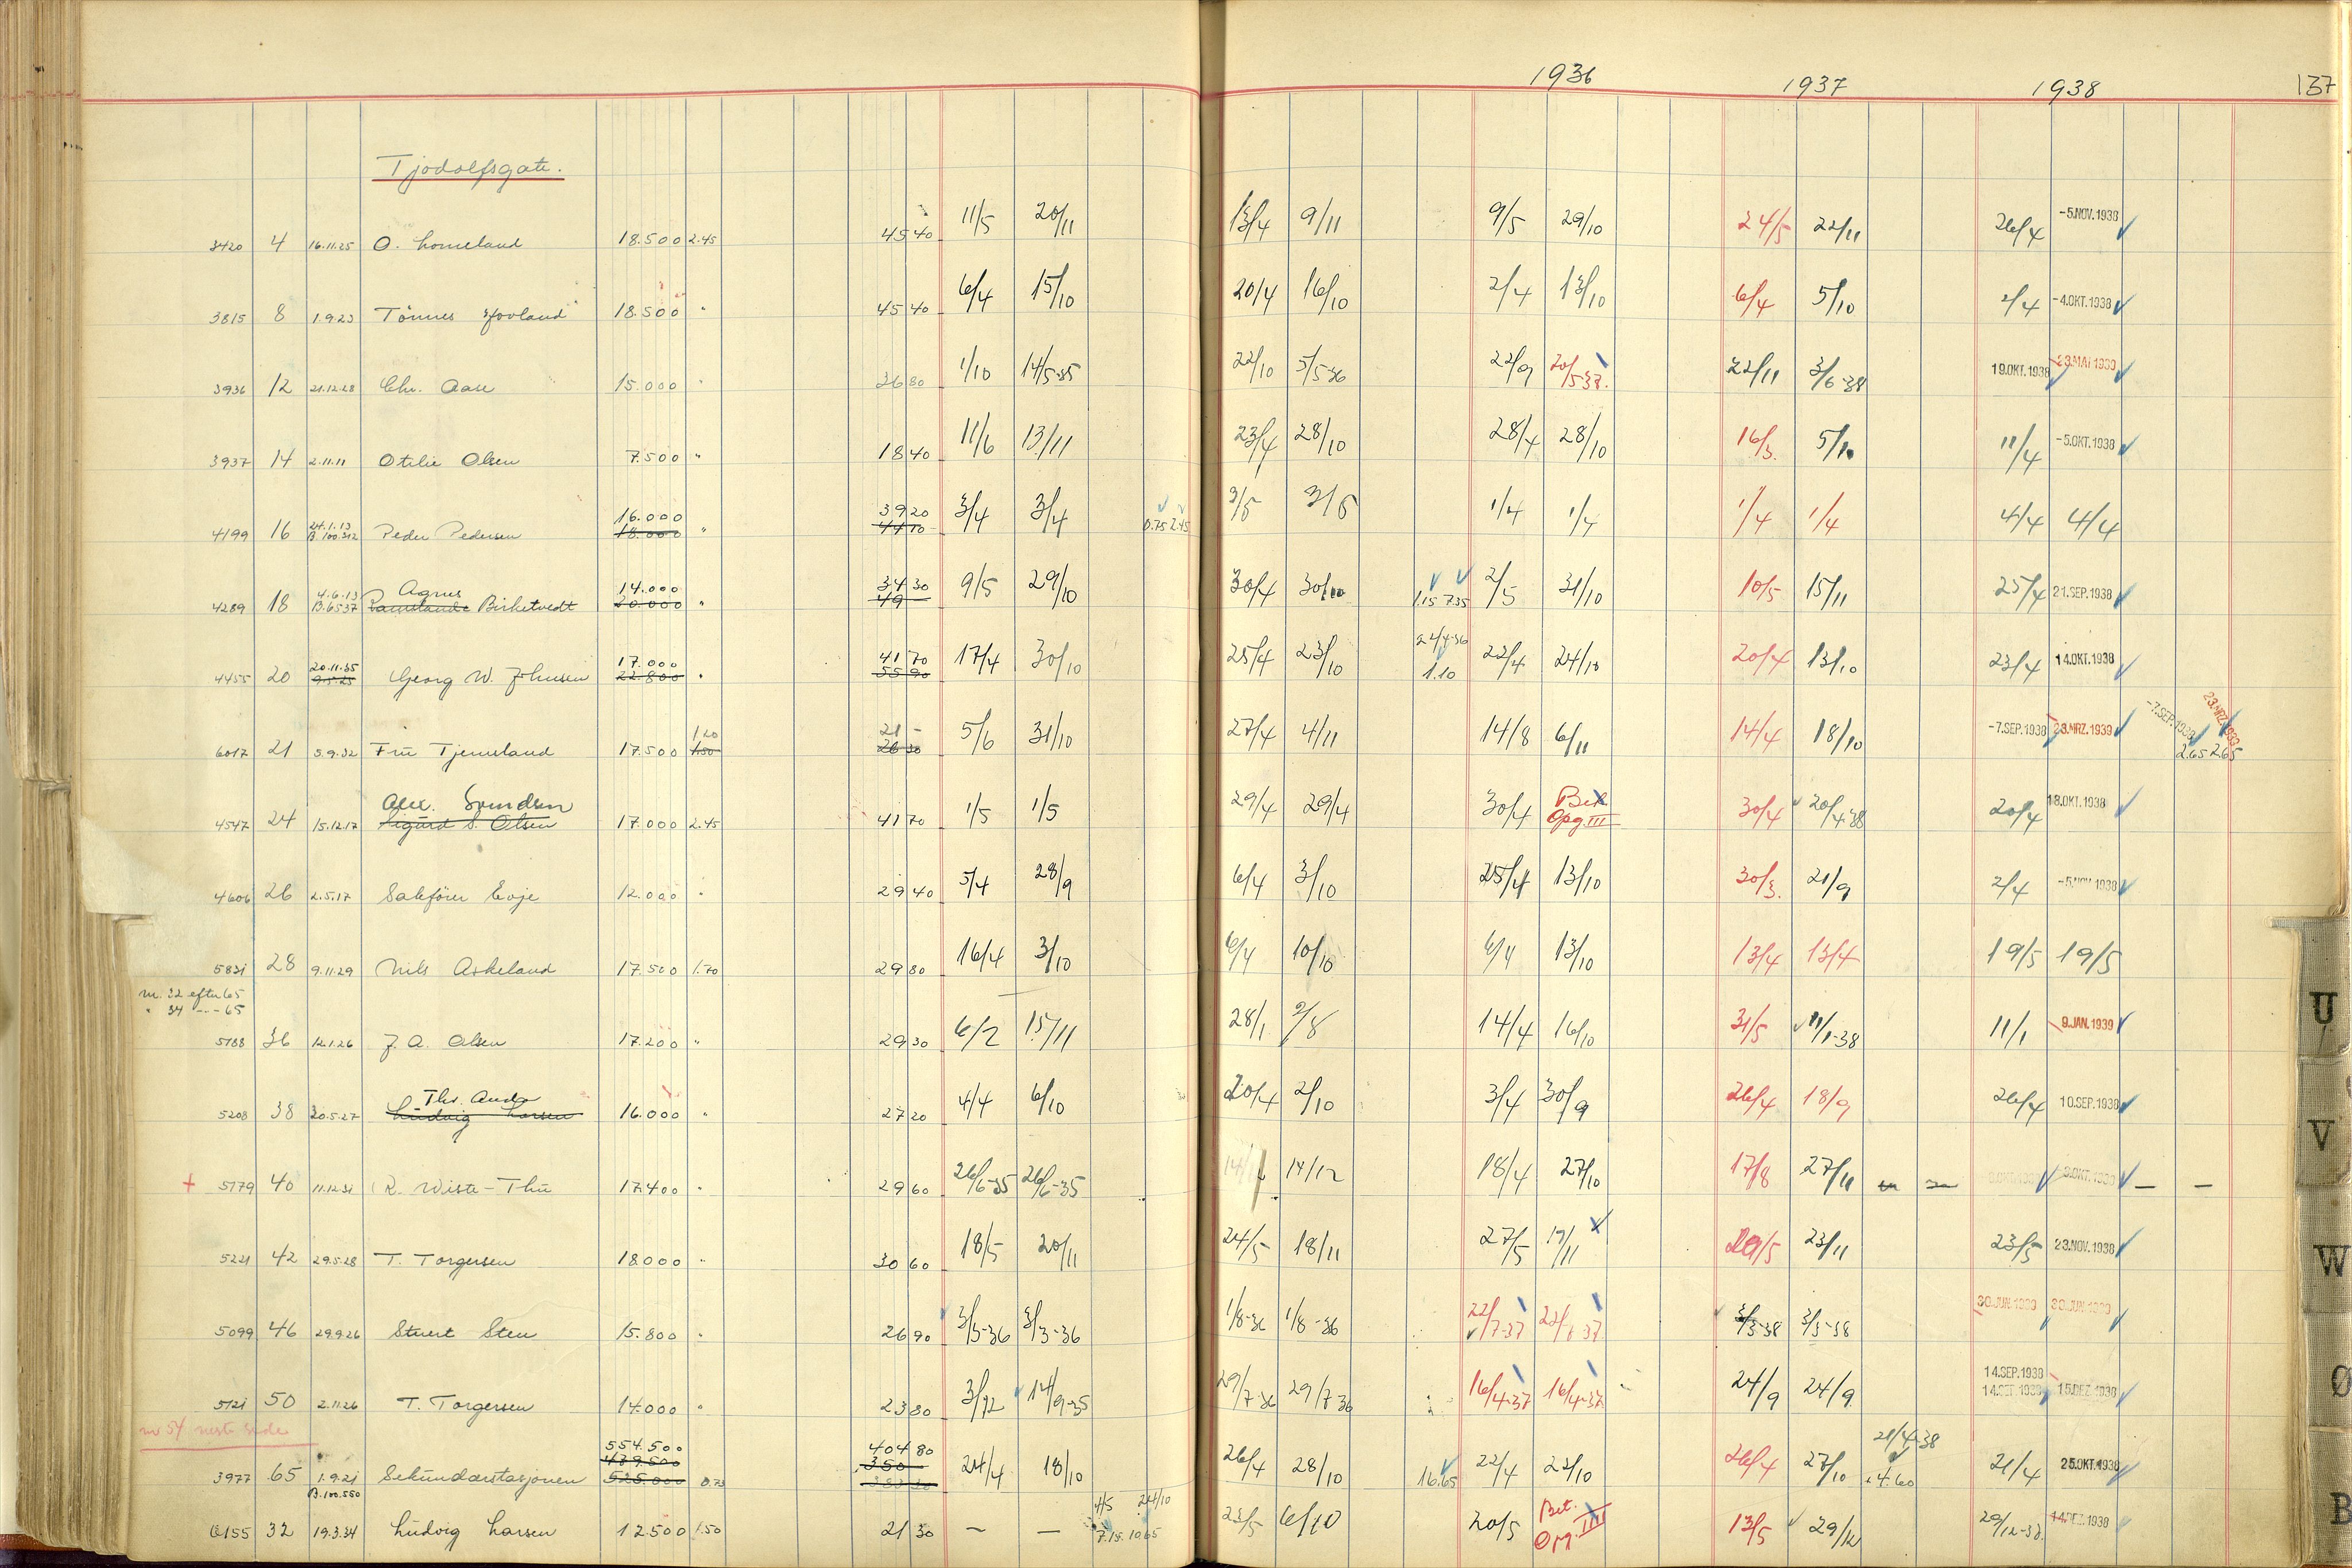 1936 1937 1938 137
Tjodolfsgate.
3420 4 16.11.25 O. Lomeland 18.500 2.45 45 40 11/5 20/11 13/4 9/11 9/5 29/10 24/5 22/11 26/4 -5.NOV.1938
3815 8 1.9.23 Tönnes Hovland 18.500 " 45 40 6/4 15/10 20/4 16/10 2/4 13/10 6/4 5/10 2/4 -4.OKT.1938
3936 12 21.12.28 Chr. Aase 15.000 " 36 80 1/10 14/5-35 22/10 5/5-36 22/9 20/5-37. 22/11 3/6-38 19.OKT.1938 23.MAI 1939
3937 14 2.11.11 Otilie Olsen 7.500 " 18 40 11/6 13/11 23/4 28/10 28/4 28/10 16/3. 5/10 11/4 -5.OKT.1938
16.000 39 20
4199 16 24.1.13 B.100.312 Peder Pedersen 18.000 " 44 10 3/4 3/4 0.75 2.45 3/5 3/5 1/4 1/4 1/4 1/4 4/4 4/4
Agnes 14.000 34 30
4289 18 4.6.13 B.6537 Birketvedt 20.000 " 49 - 9/5 29/10 30/4 30/10 1.15 7.35 2/5 31/10 10/5 15/11 25/4 21.SEP.1938
20.11.35 17.000 41 70 22/4-36
4455 20 9.5.25 Georg W. Johnsen 22.800 " 55 90 17/4 30/10 25/4 23/10 1.10 22/4 24/10 20/4 13/10 23/4 14.OKT.1938
1.20 21 - -7.SEP.1938 23.MRZ.1939
6017 21 5.9.32 Fru Tjemeland 17.500 1.50 26 30 5/6 31/10 27/4 4/11 14/8 6/11 14/4 18/10 -7.SEP.1938 23.MRZ.1939 2.65 2.65
Alex. Svendsen
4547 24 15.12.17 Sigurd S. Olsen 17.000 2.45 41 70 1/5 1/5 29/4 29/4 30/4 Bet. Opg. III 30/4 20/4-38 20/4 18.OKT.1938
4606 26 2.5.17 Sakförer Evje 12.000 " 29 40 5/4 28/9 6/4 3/10 25/4 13/10 30/3. 21/9 2/4 -5.NOV.1938
5831 28 9.11.29 Nils Askeland 17.500 1.70 29 80 16/4 3/10 6/4 10/10 6/4 13/10 13/4 13/4 19/5 19/5
nr. 32 efter 65
" 34 --- 65
5188 36 12.1.26 J. A. Olsen 17.200 " 29 30 6/2 15/11 28/1 2/8 14/4 16/10 31/5 11/1-38 11/1 9.JAN.1939
5208 38 20.5.27 Ludvig Larsen 16.000 " 27 20 4/4 6/10 20/4 2/10 3/4 30/9 26/4 18/9 26/4 10.SEP.1938
+ 5779 40 11.12.31 R. Wiste-Thu 17.400 " 29 60 26/6-35 26/6-35 14/12 18/4 27/10 17/8 27/11 — —
5221 42 29.5.28 T. Torgersen 18.000 " 30 60 18/5 20/11 24/5 18/11 27/5 19/11 29/5 23/11 23/5 23.NOV.1938
5099 46 29.9.26 Stuert Sten 15.800 " 26 90 3/3-36 3/3-36 1/8-36 1/8-36 22/7-37 3/3-38 3/3-38 30.JUN.1939 30.JUN.1939
5121 50 2.11.26 T. Torgersen 14.000 " 23 80 3/12 14/9-35 29/7-36 29/7 36 16/4-37 16/4-37 24/9 24/9 14.SEP.1938 15.DEZ.1938
nr 54 neste side
554.500 404 80 21/4-38
439.500 350 -
3977 65 1.9.21 Sekundærstasjonen 525.000 0.73 24/4 18/10 26/4 28/10 16.65 22/4 22/10 26/4 27/10 14.60 21/4 25.OKT.1938
B.100.550 4/5 24/10
6155 32 19.3.34 Ludvig Larsen 12.500 1.50 21 30 — — 7.15 10.65 23/5 6/10 20/5 Bet. Opg. III 13/5 29/12 29/12-38. 14.DEZ.1938
U
V
W
Ø
B